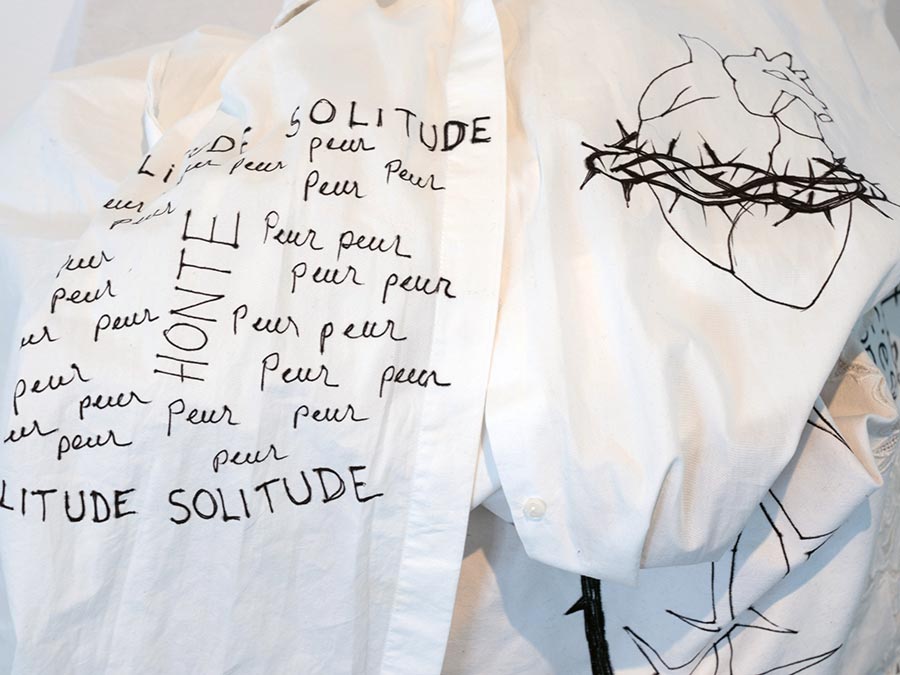 SOLITUDE
peur
peur
Peur Peur
Peur peur
HONTE
peur
peur peur
peur Peur peur
peur Peur peur
peur Peur peur
peur
peur
LITUDE SOLITUDE